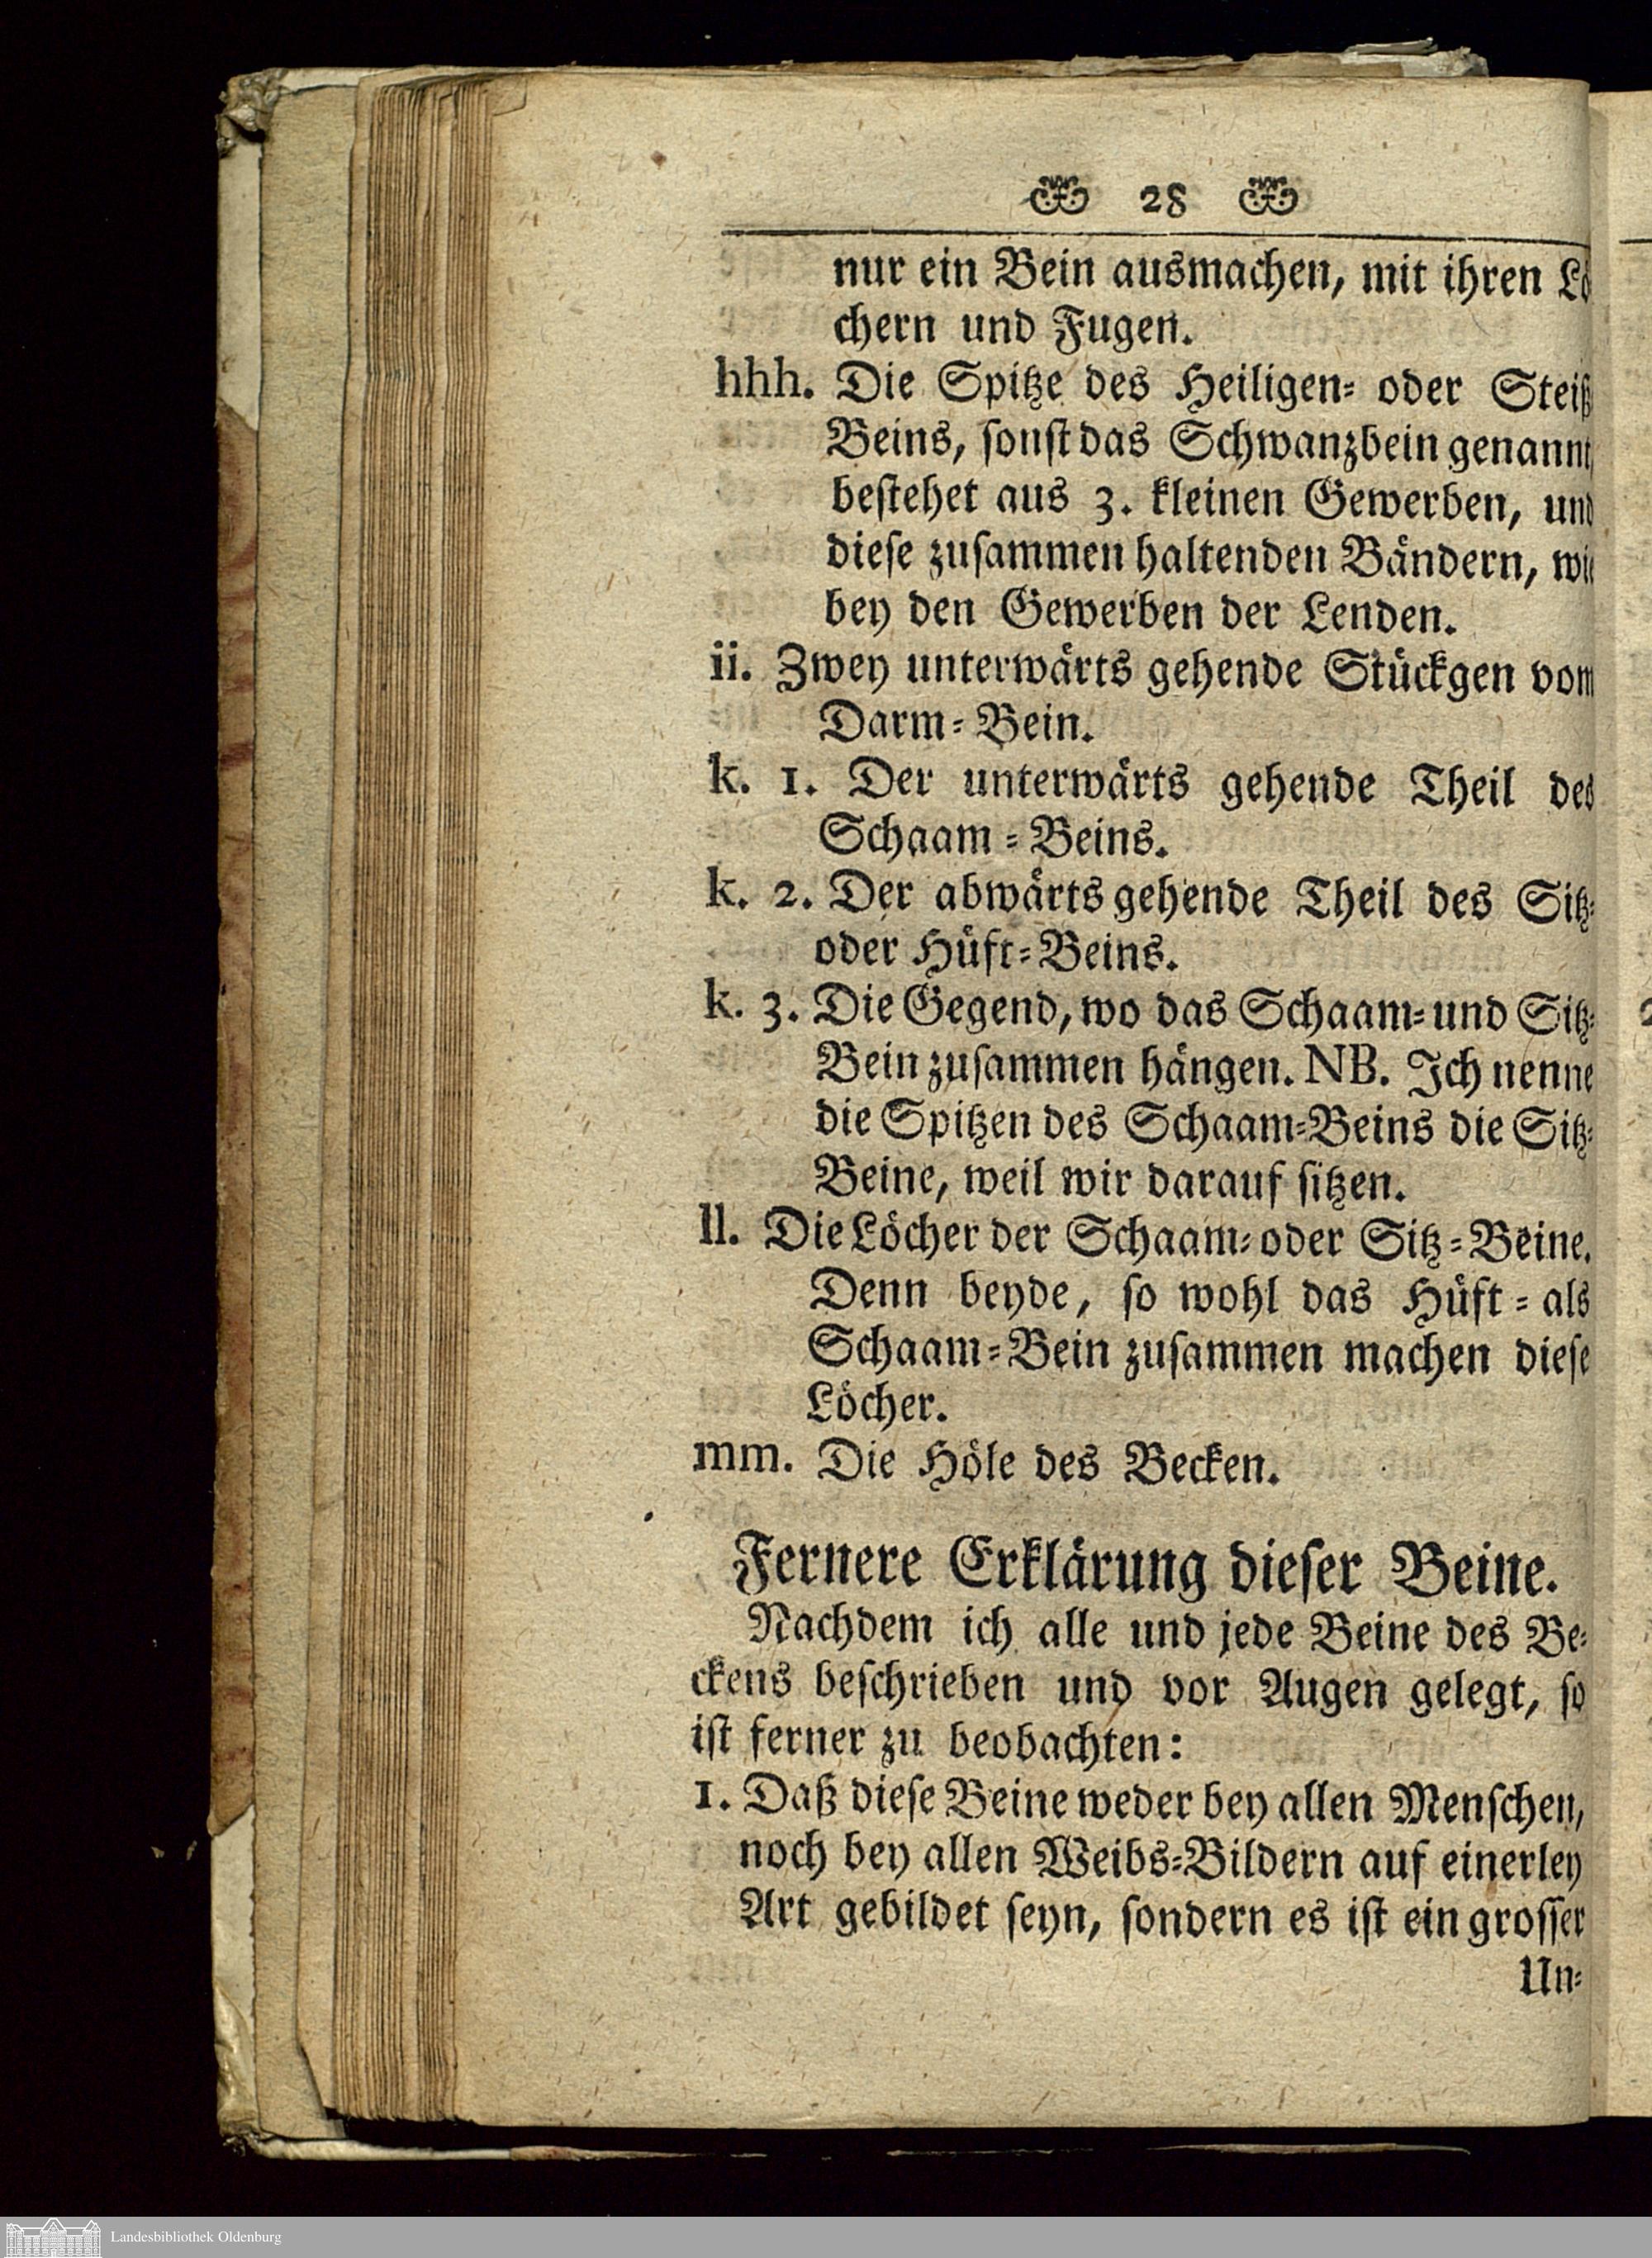 28
nur ein Bein ausmachen, mit ihren Lö
chern und Fugen.
hhh. Die Spitze des Heiligen- oder Steiß
Beins, sonst das Schwanzbein genannt,
bestehet aus 3. kleinen Gewerben, und
diese zusammen haltenden Bändern, wie
bey den Gewerben der Lenden.
ii. Zwey unterwärts gehende Stückgen vom
Darm-Bein.
k. 1. Der unterwärts gehende Theil des
Schaam-Beins.
k. 2. Der abwärts gehende Theil des Sitz-
oder Hüft-Beins.
k. 3. Die Gegend, wo das Schaam- und Sitz-
Bein zusammen hängen. NB. Ich nenne
die Spitzen des Schaam-Beins die Sitz-
Beine, weil wir darauf sitzen.
ll. Die Löcher der Schaam- oder Sitz-Beine.
Denn beyde, so wohl das Hüft- als
Schaam-Bein zusammen machen diese
Löcher.
mm. Die Höle des Becken.
Fernere Erklärung dieser Beine.
Nachdem ich alle und jede Beine des Be-
ckens beschrieben und vor Augen gelegt, so
ist ferner zu beobachten:
1. Daß diese Beine weder bey allen Menschen,
noch bey allen Weibs-Bildern auf einerley
Art gebildet seyn, sondern es ist ein grosser
Un-
Landesbibliothek Oldenburg